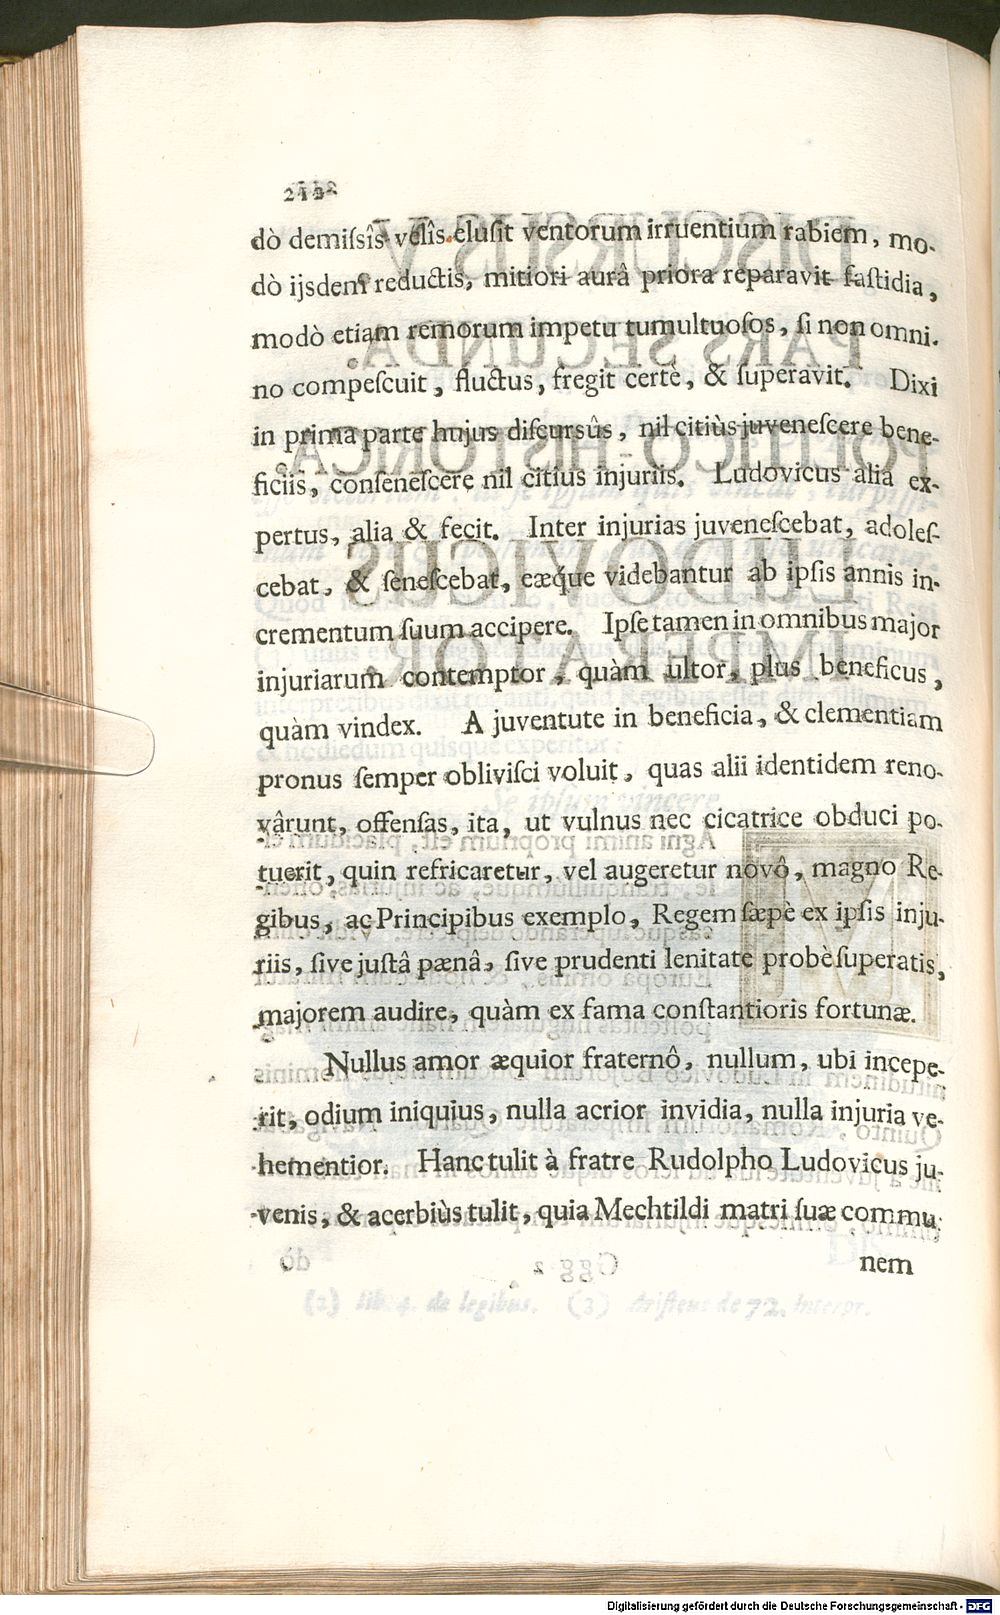 212
dò demiſsîs velîs eluſit ventorum irruentium rabiem, mo-
dò ijsdem reductis, mitiori aurâ priora reparavit faſtidia,
modò etiam remorum impetu tumultuoſos, ſi non omni-
no compeſcuit, fluctus, fregit certè, & ſuperavit. Dixi
in prima parte hujus diſcursûs, nil citiùs juveneſcere bene-
ficiis, conſeneſcere nil citius injuriis. Ludovicus alia ex-
pertus, alia & fecit. Inter injurias juveneſcebat, adoleſ-
cebat, & ſeneſcebat, eæq́ue videbantur ab ipſis annis in-
crementum ſuum accipere. Ipſe tamen in omnibus major
injuriarum contemptor, quàm ultor, plus beneficus,
quàm vindex. A juventute in beneficia, & clementiam
pronus ſemper obliviſci voluit, quas alii identidem reno-
vârunt, offenſas, ita, ut vulnus nec cicatrice obduci po-
tuerit, quin refricaretur, vel augeretur novô, magno Re-
gibus, ac Principibus exemplo, Regem ſæpè ex ipſis inju-
riis, ſive juſtâ pænâ, ſive prudenti lenitate probè ſuperatis,
majorem audire, quàm ex fama conſtantioris fortunæ.
Nullus amor æquior fraternô, nullum, ubi incepe-
rit, odium iniquius, nulla acrior invidia, nulla injuria ve-
hementior. Hanc tulit à fratre Rudolpho Ludovicus ju-
venis, & acerbiùs tulit, quia Mechtildi matri ſuæ commu-
nem
Digitalisierung gefördert durch die Deutsche Forschungsgemeinschaft - DFG